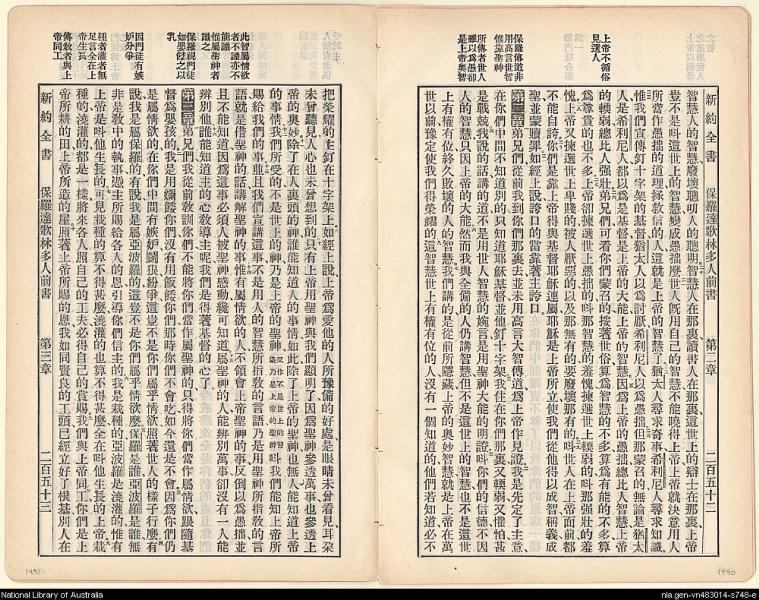 上帝不偏俗見選人
保羅傳道非用高言世智惟靠聖神
所傳者世人雖以爲愚卻是上帝奧智
新約全書 保羅達歌林多人前書 第二章 二百五十二
智慧人的智慧廢壞聰明人的聰明智慧人在那裏讀書人在那裏這世上的辯士在那裏上帝
豈不是呌這世上的智慧變成愚拙麽世人旣用自己的智慧不能曉得上帝上帝就決意用人
所當作愚拙的道理拯救信的人這就是上帝的智慧了猶太人尋求奇事希利尼人尋求知識
惟我們宣傳釘十字架的基督猶太人以爲討厭希利尼人以爲愚拙但那蒙召的無論是猶太
人是希利尼人都以爲是基督是上帝的大能上帝的智慧因爲上帝的愚拙總比人智慧上帝
的輭弱總比人強壯弟兄們可看你們蒙召的按著世俗算爲智慧的不多算爲有能的不多算
爲尊貴的也不多上帝卻揀選世上愚拙的呌那智慧的羞愧揀選世上輭弱的呌那強壯的羞
愧上帝又揀選世上卑賤的被人厭惡的以及那無有的要廢壞那有的呌世人在上帝面前都
不能自誇你們是靠上帝得與基督耶穌連屬耶穌是上帝所立使我們從他得以成智稱義成
聖並蒙贖罪如經上說誇口的當靠著主誇口
第二章弟兄們從前我到你們那裏去並未用高言大智傳道爲上帝作見證我是先定了主意
在你們中間不知道別的只知道耶穌基督並他釘十字架我住在你們那裏又輭弱又懼怕甚
是戰兢我說的話講的道不是用世人智慧的婉言是用聖神大能的明證呌你們的信德不因
人的智慧只因上帝的大能然而我與全備的人仍講智慧但不是這世上的智慧也不是這世
上有權有位終久敗壞的人的智慧我們講的是從前所隱藏上帝的奧妙智慧就是上帝在萬
世以前豫定使我們得榮耀的這智慧世上有權有位的人沒有一個知道的他們若知道必不
1490
此智屬情欲者不識亦不能識
惟屬聖神者識之
保羅視門徒如嬰孩之以乳
因門徒有嫉妒分爭
種者灌者無足言全在上帝生長
傳敎者與上帝同工
把榮耀的主釘在十字架上如經上說上帝爲愛他的人所豫備的好處是眼睛未曾看見耳朶
未曾聽見人心也未曾想到的只有上帝用聖神與我們顯明了因爲聖神參透萬事也參透上
帝的奧妙除了在人裏頭的神誰能知道人的事情如此除了上帝的聖神也無人能知道上帝
的事情我們所受的不是世上的神乃是上帝的聖神呌我們能知上帝所
賜給我們的事並且我們宣講這事不是用人的智慧所指敎的言語乃是用聖神所指敎的言
語就是借聖神的話講解聖神的事惟有屬情欲的人不領會上帝聖神的事反倒以爲愚拙並
且不能知道因爲這事必須人被聖神感動纔可知道屬聖神的人能辨別萬事卻沒有一人能
辨別他誰能知道主的心敎導主呢我們是得著基督的心了
第三章弟兄們我從前敎訓你們不能將你們當作屬聖神的只得將你們當作屬情欲跟隨基
督爲嬰孩的我是用嬭餧你們沒有用飯餧你們那時你們不會吃如今還是不會因爲你們仍
是屬情欲的在你們中間有嫉妒鬬狠紛爭這豈不是你們屬乎情欲照著世人的樣子行麽有
說我是屬保羅的有說我是屬亞波羅的這豈不是你們屬乎情欲麽保羅是誰亞波羅是誰無
非是敎中的執事憑主所賜給各人的恩引導你們信主的我是栽種的亞波羅是澆灌的惟有
上帝是呌他生長的可見栽種的算不得甚麽澆灌的也算不得甚麽全在呌他生長的上帝栽
種的澆灌的都是一樣將來各人照自己的工夫必得自己的賞賜我們與上帝同工你們是上
帝所耕的田上帝所造的屋照著上帝所賜的恩我如同賢良的工頭已經立好了根基別人在
新約全書 保羅達歌林多人前書 第三章 二百五十三
1491
National Library of Australia
nla.gen-vn483014-s748-e